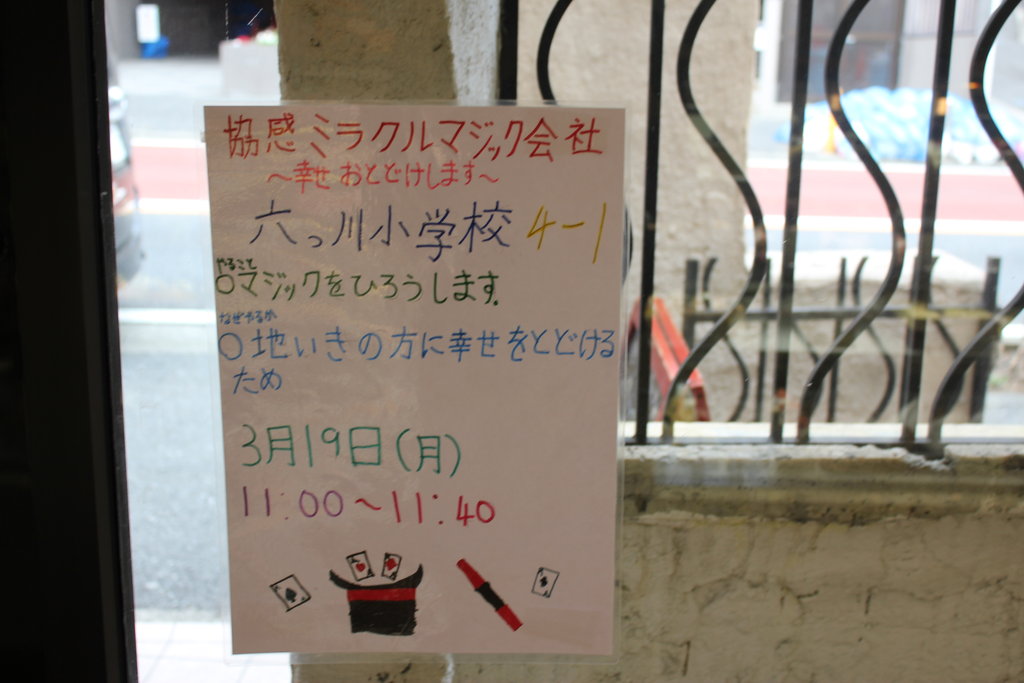 協感ミラクルマジック会社
〜幸せおとどけします〜
六っ川小学校 4-1
やること
○マジックをひろうします。
なぜやるか
○地いきの方に幸せをとどける
ため
3月19日(月)
11:00〜11:40